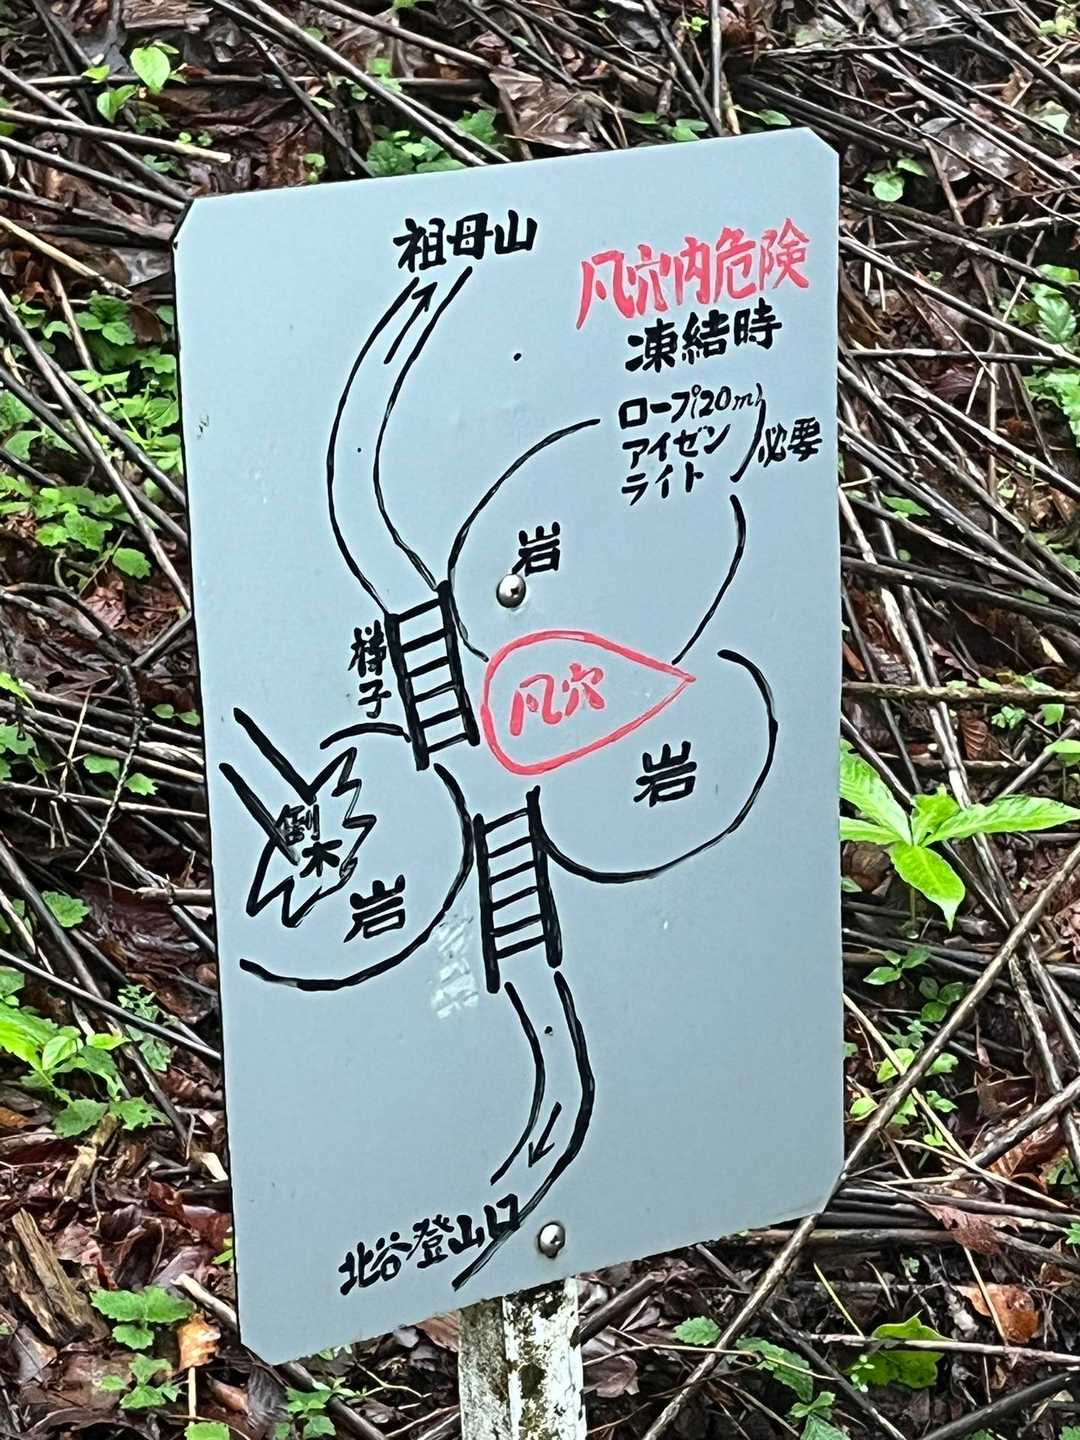 祖母山
凡穴内危険
凍結時
ロープ(20m)
アイゼン
ライト
必要
岩
梯子
凡穴
岩
倒木
岩
北谷登山口